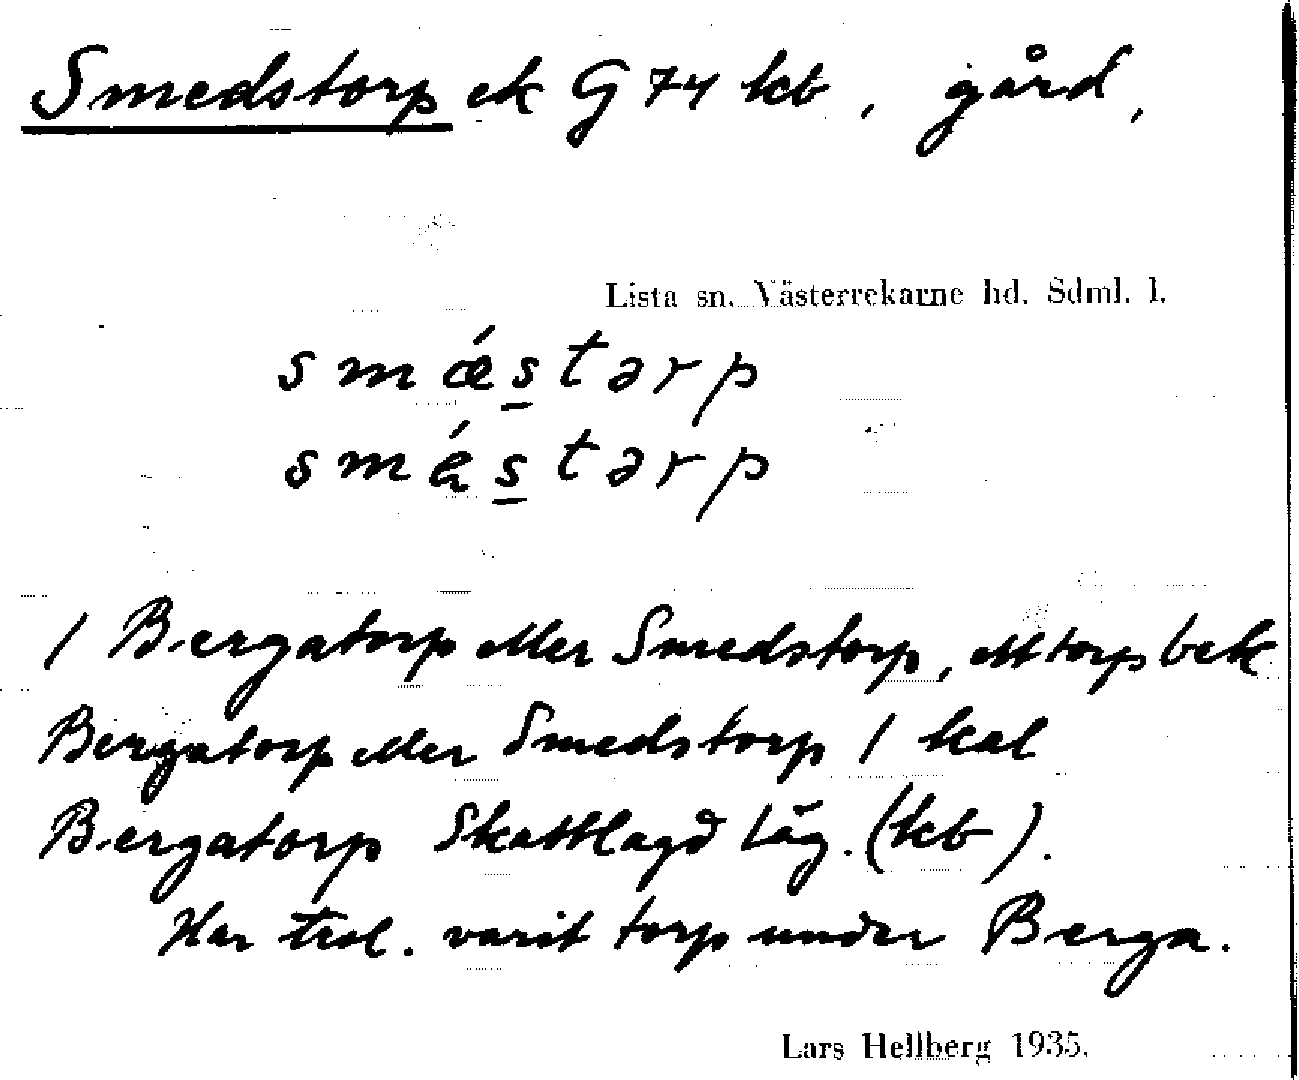 Smedstorp ek G 74 kb, gård,
Lista sn. Västerrekarne hd. Sdml. l.
smǽs̲tərp
smés̲tərp
1 Bergatorp eller Smedstorp, ett torp bek
Bergatorp eller Smedstorp 1 kal
Bergatorp Skattlagd läg. (kb).
Har trol. varit torp under Berga.
Lars Hellberg 1935.